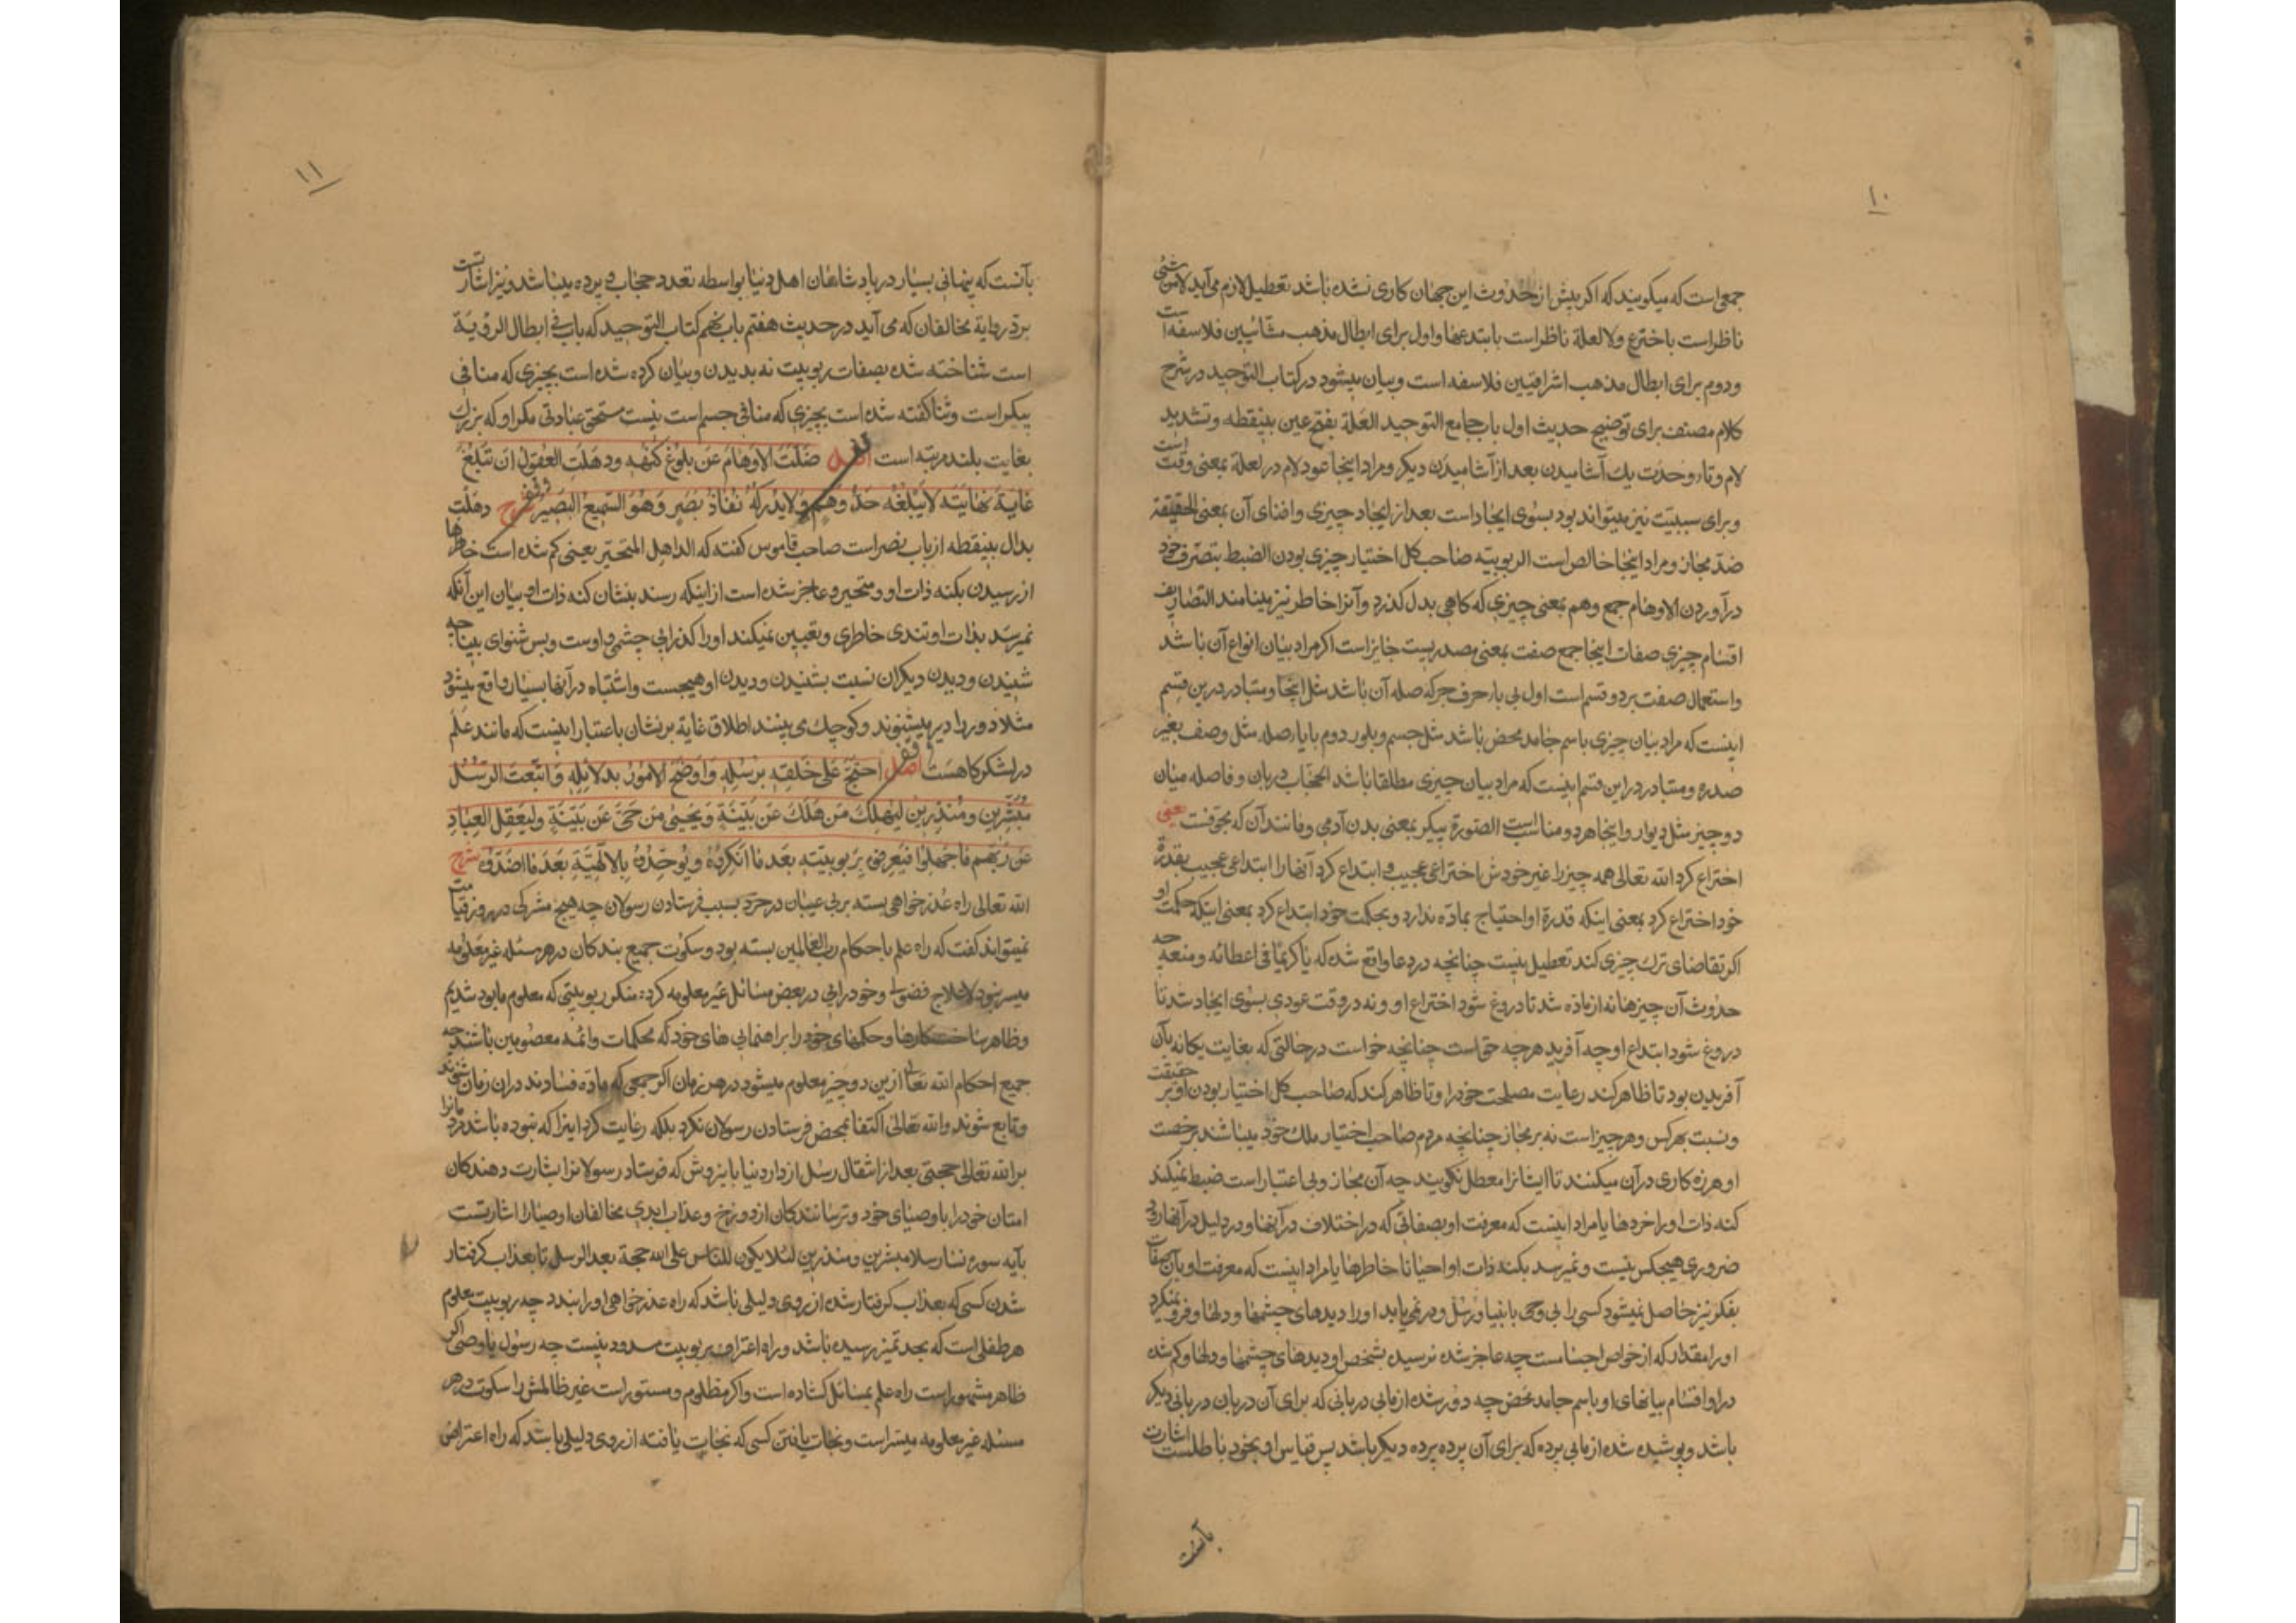 ١٠
جمعی است که میگویند که اکر پیش از حدوث این جهان کاری نشده باشد تعطیل لازم می آید لامن شئ
ناظر است باخترع ولا لعلة ناظر است بابتدعها و اول برای ابطال مذهب مشائیین فلاسفه است
ودوم برای ابطال مذهب اشراقیین فلاسفه است و بیان میشود در کتاب التوحید در شرح
کلام مصنف برای توضیح حدیث اول باب جامع التوحید العلة بفتح عین بینقطه و تشدید
لام و تاء وحدت یك آشامیدن بعد از آشامیدن دیکر و مراد اینجا عود لام در لعلة بمعنی وقت است
و برای سببیت نیز میتواند بود بسوی ایجاد است بعد از ایجاد چیزی و افنای آن بمعنی الحقیقة
ضد مجاز و مراد اینجا خالص است الربوبیّه صاحب کل اختیار چیزی بودن الضبط بتصرف خود
در آوردن الاوهام جمع وهم بمعنی چیزی که کاهی بدل کذرد و آنرا خاطر نیز مینامند التصاریف
اقسام چیزی صفات اینجا جمع صفت بمعنی مصدریست جایز است اکر مراد بیان انواع آن باشد
واستعمال صفت بر دو قسم است اول بی بار حرف جر که صله آن باشد مثل اینجا و متبادر درین قسم
اینست که مراد بیان چیزی باسم جامد محض باشد مثل جسم و بلور دوم با یار صله مثل وصف بغیر
صدره و متبادر در این قسم اینست که مراد بیان چیزی مطلقا باشد الحجاب دربان و فاصله میان
دو چیز مثل دیوار و اینجا هر دو مناسب است الصورة پیکر بمعنی بدن آدمی و مانند آن که مجوفست یعنی
اختراع کرد الله تعالی همه چیز را غیر خودش اختراعی عجیب و ابتداع کرد آنها را ابتداعی عجیب بقدرة
خود اختراع کرد بمعنی اینکه قدرة او احتیاج بمادّه ندارد و بحکمت خود ابتداع کرد بمعنی اینکه حکمت او
اکر تقاضای ترك چیزی کند تعطیل نیست چنانچه در دعا واقع شده که یا کریما فی اعطائه و منعه چه
حدوث آن چیزها نه از مادّه شد تا دروغ شود اختراع او و نه در وقت عودی بسوی ایجاد شد تا
دروغ شود ابتداع او چه آفرید هر چه خواست چنانچه خواست در حالتی که بغایت یکانه بآن
آفریدن بود تا ظاهر کند رعایت مصلحت خود را و تا ظاهر کند که صاحب کل اختیار بودن او بر حقیقت
و نسبت بهرکس و هر چیز است نه بر مجاز چنانچه مردم صاحب اختیار ملك خود میباشند برخصت
او هرزه کاری در آن میکنند تا ایشانرا معطل نکویند چه آن مجاز و بی اعتبار است ضبط نمیکند
کنه ذات او را خردها یا مراد اینست که معرفت او بصفاتی که در اختلاف در آنها و در دلیل در آنها رود
ضروری هیچکس نیست و نمیرسد بکنه ذات او احیانا خاطرها یا مراد اینست که معرفت او بآن صفات
بفکر نیز حاصل نمیشود کسی را بی وحی بانبیا و رسل و در نمی یابد او را دیدهای چشمها و دلها و فرو نمیکیرد
او را مقدار که از خواص اجسامست چه عاجز شده نرسیده بشخص او دیدهای چشمها و دلها و کم شده
در او اقسام بیانهای او باسم جامد محض چه دور شده از مابی دربانی که برای آن دربان دربانی دیکر
باشد و پوشیده شده از مابی پرده که برای آن پرده پرده دیکر باشد پس قیاس او بخود باطلست اشارت
بآنست
١١
بآنست که پنهانی بسیار در پادشاهان اهل دنیا بواسطه تعدد حجاب و پرده میباشد و نیز اشارتست
برد روایة مخالفان که می آید در حدیث هفتم باب نهم کتاب التوحید که باب فی ابطال الرؤیة
است شناخته شده بصفات ربوبیت نه بدیدن و بیان کرده شده است بچیزی که منافی
پیکر است و ثنا کفته شده است بچیزی که منافی جسم است نیست مستحق عبادتی مکر او که بزرك
بغایت بلند مرتبه است اصل ضَلّتِ الاوهامُ عن بلوغ کُنهه و ذهلت العقول ان تبلغ
غایة نهایته لا یبلغه حدّ وهم ولا یدرکه نفاذ بصر وهو السمیع البصیر شرح ذهلت
بذال بینقطه از باب نصر است صاحب قاموس کفته که الداهل المتحیّر یعنی کم شده است خاطرها
از رسیدن بکنه ذات او و متحیر و عاجز شده است از اینکه رسند بنشان کنه ذات او بیان این آنکه
نمیرسد بذات او تندی خاطری و تعیین نمیکند او را کذرایی چشمی و اوست و بس شنوای بینا چه
شنیدن و دیدن دیکران نسبت بشنیدن و دیدن او هیچست و اشتباه در آنها بسیار واقع میشود
مثلا دور را دیر میشنوند و کوچك می بینند اطلاق غایة بر نشان باعتبار اینست که مانند عَلَم
در لشکرکاهست اصل احتجّ علی خلقه برسله و اوضح الامور بدلائله و ابتعث الرسل
مبشّرین و منذرین لیهلك من هلك عن بیّنة و یحیی من حیّ عن بیّنة و لیعقل العباد
عن ربهم ما جهلوا فیعرفوه بربوبیته بعد ما انکروه و یوحّدوه بالالهیّة بعد ما اضدّوه شرح
الله تعالی راه عذرخواهی بسته بر بی عیبان در خرد بسبب فرستادن رسولان چه هیچ مشرکی در روز قیامت
نمیتواند کفت که راه علم باحکام رب العالمین بسته بود و سکوت جمیع بندکان در هر مسئله غیر معلومه
میسر نبود لاعلاج فضولی و خودرایی در بعض مسائل غیر معلومه کرده منکر ربوبیتی که معلوم ما بود شدیم
و ظاهر ساخت کارها و حکمهای خود را براهنمایی های خود که محکمات و ائمه معصومین باشند چه
جمیع احکام الله تعالی ازین دو چیز معلوم میشود در هر زمان اکر جمعی که مادّه فسادند در ان زمان شوند
و تابع شوند و الله تعالی اکتفا بمحض فرستادن رسولان نکرد بلکه رعایت کرد اینرا که نبوده باشد مردمانرا
بر الله تعالی حجتی بعد از انتقال رسل از دار دنیا باینروش که فرستاد رسولانرا بشارت دهندکان
امتان خود را باوصیای خود و ترسانندکان از دوزخ و عذاب ابدی مخالفان اوصیا را اشارتست
بآیه سوره نساء رسلا مبشرین و منذرین لئلا یکون للناس علی الله حجة بعد الرسل تا بعذاب کرفتار
شدن کسی که بعذاب کرفتار شده از روی دلیلی باشد که راه عذرخواهی او را بندد چه ربوبیت معلوم
هر طفلی است که بحد تمیز رسیده باشد و راه اعتراف بربوبیت مسدود نیست چه رسول یا وصی اکر
ظاهر مشهور است راه علم بمسائل کشاده است و اکر مظلوم و مستور است غیر ظالمش را سکوت در هر
مسئله غیر معلومه میسر است و نجات یافتن کسی که نجات یافته از روی دلیلی باشد که راه اعتراض